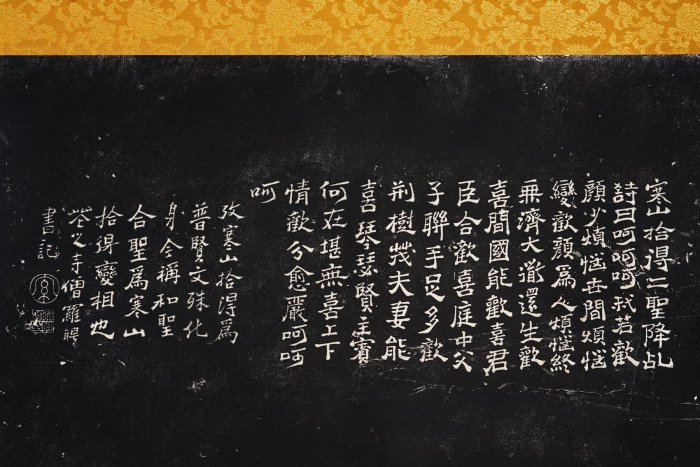 寒山拾得二聖降乩
詩曰呵呵呵我若歡
顏少煩惱世間煩惱
變歡顏爲人煩惱終
無濟大道還生歡
喜間國能歡喜君
臣合歡喜庭中父
子聯手足多歡
荊樹茂夫妻能
喜琴瑟賢主賓
何在堪無喜上下
情歡分愈嚴呵呵
呵
攷寒山拾得爲
普賢文殊化
身今稱和聖
合聖爲寒山
拾得變相也
花之寺僧羅聘
書記